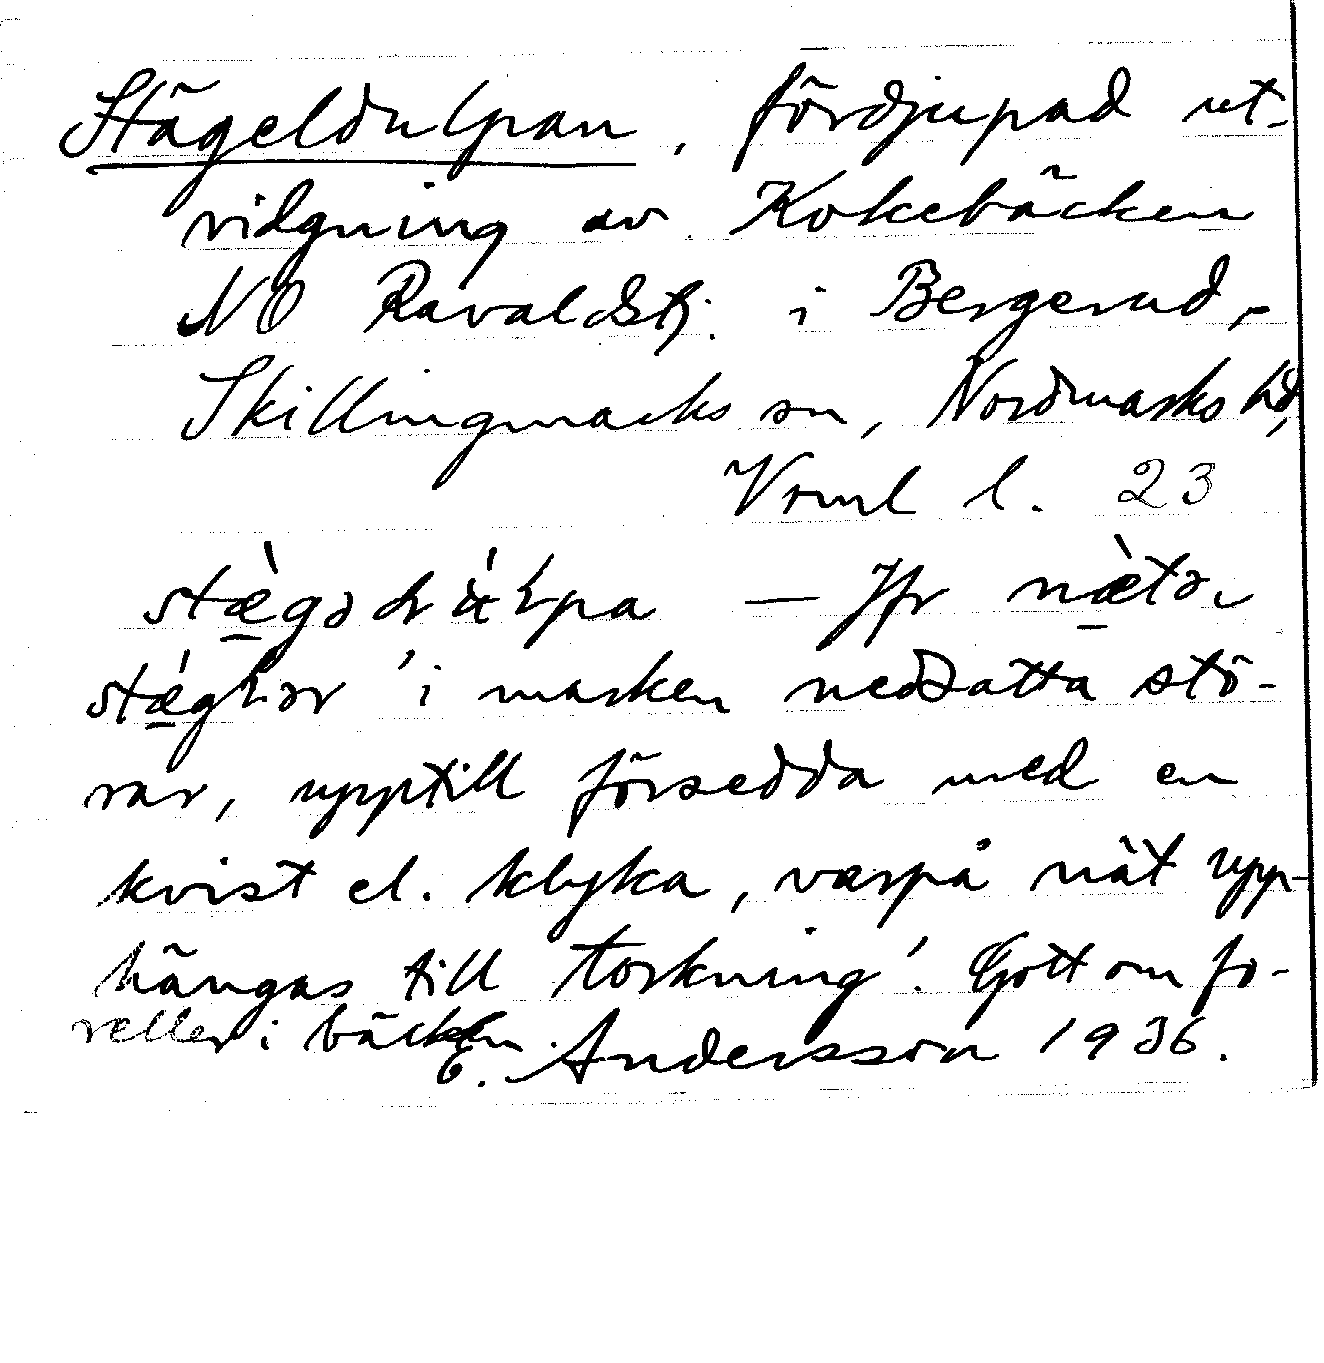 Stägeldulpan, fördjupad ut-
vidgning av Kokebäcken
NO Ravaldstj. i Bergerud,
Skillingmarks sn, Nordmarks hd,
Vrml l. 23
— Jfr
'i marken nedsatta stö-
rar, upptill försedda med en
kvist el. klyka, varpå nät upp-
hängas till torkning'. Gott om fo-
reller i bäcken.
E. Andersson 1936.